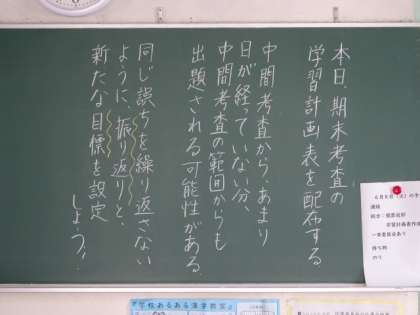 本日、期末考査の
学習計画表を配布する
中間考査から、あまり
日が経っていない分、
中間考査の範囲からも
出題される可能性がある。
同じ誤ちを繰り返さない
ように、振り返りと
新たな目標を設定
しよう!
連絡
持ち物
のり
『学校あるある漢字教室』